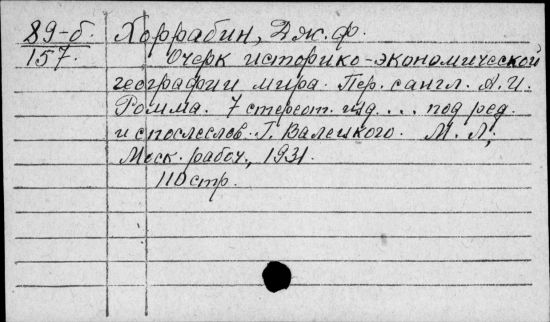 89-б. Хоррабин, Дж. Ф.
157. Очерк историко-экономической
географии мира. Пер. с англ. А. И.
Ромма. 7 стереот. изд. ... под ред.
и с послеслов. Г. Валецкого. М. Л,
Моск. рабоч., 1931.
110 стр.